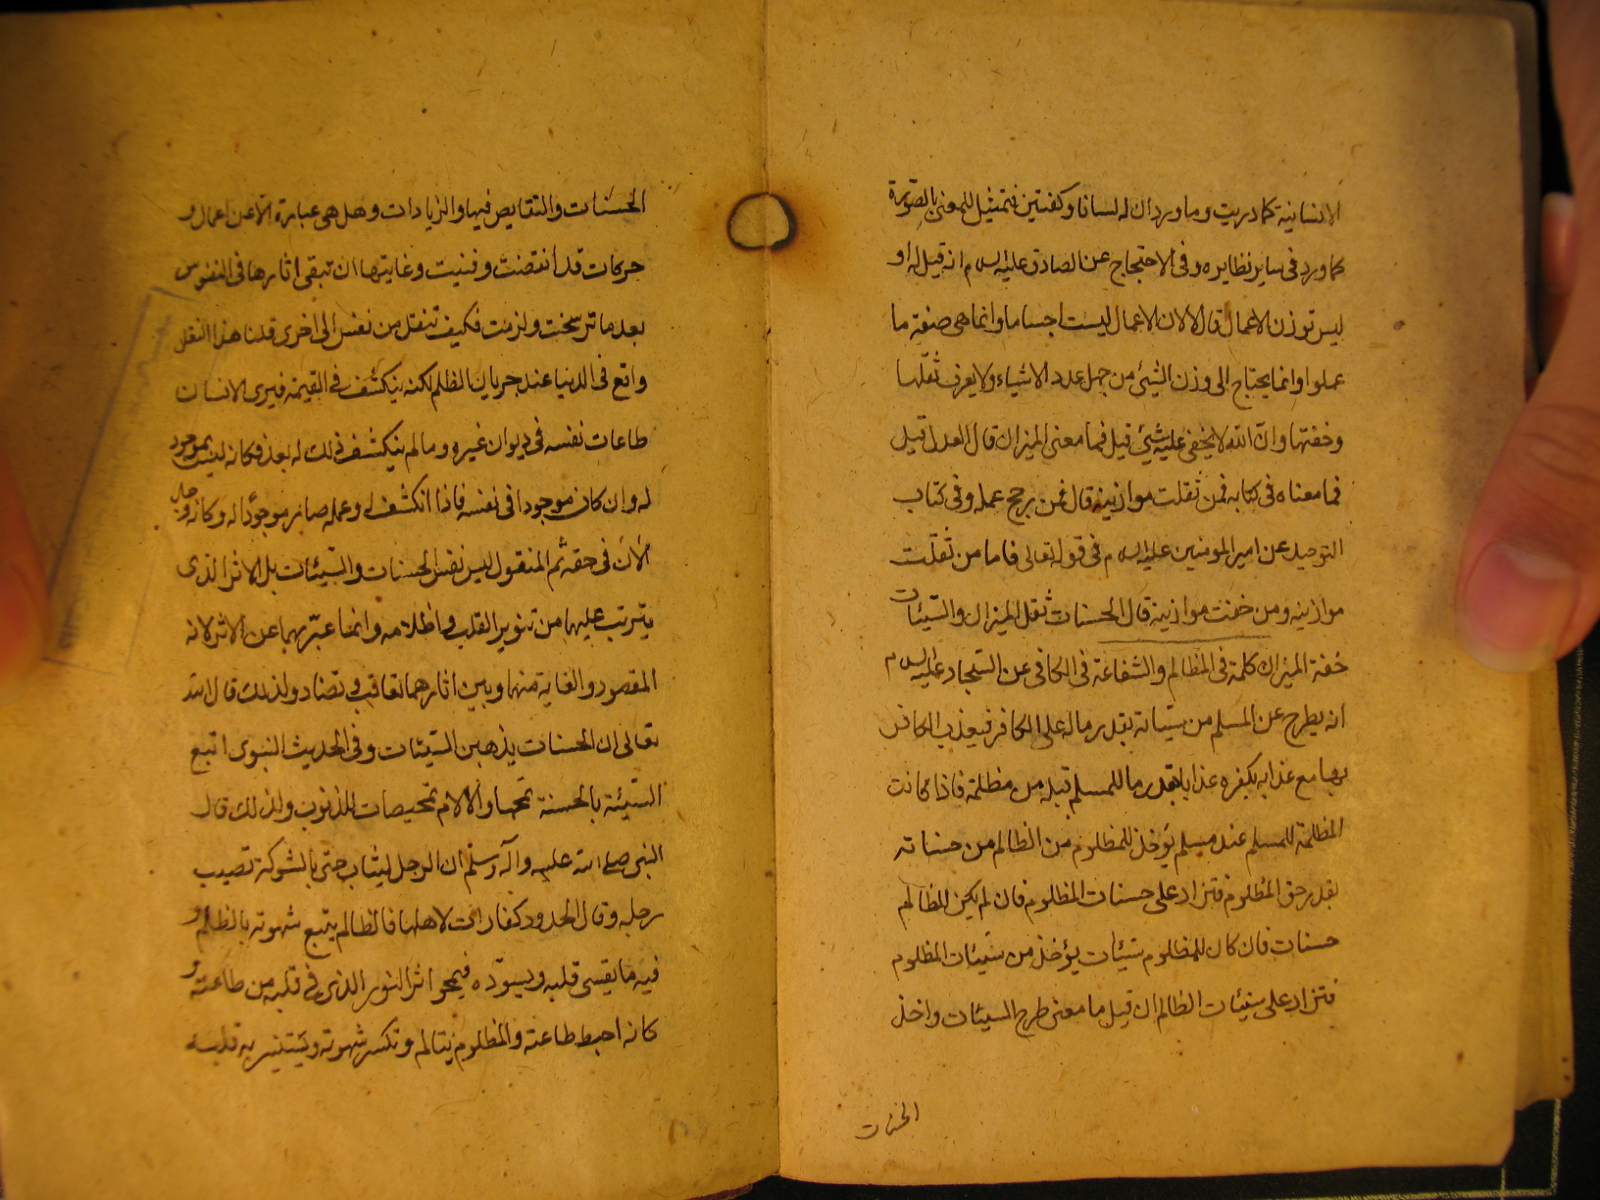 الانسانية كما دريت وما ورد ان له لسانا وكفتين فتمثيل للمعنى بالصورة
كما ورد فى ساير نظايره وفى الاحتجاج عن الصادق عليه السلم انه قيل له او
ليس توزن الاعمال قال لا لان الاعمال ليست اجساما وانما هى صفة ما
عملوا وانما يحتاج الى وزن الشيئ من جهل عدد الاشياء ولا يعرف ثقلها
وخفتها وان الله لا يخفى عليه شيئ قيل فما معنى الميزان قال العدل قيل
فما معناه فى كتابه فمن ثقلت موازينه قال فمن رجح عمله وفى كتاب
التوحيد عن امير المومنين عليه السلم فى قوله تعالى فاما من ثقلت
موازينه ومن خفت موازينه قال الحسنات ثقل الميزان والسيئات
خفة الميزان كلمة فى المظالم والشفاعة فى الكافى عن السجاد عليه السلم
انه يطرح عن المسلم من سيئاته بقدر ماله على الكافر فيعذب الكافر
بها مع عذابه بكفره عذابا بقدر ما للمسلم قبله من مظلمة فاذا كانت
المظلمة للمسلم عند مسلم يؤخذ للمظلوم من الظالم من حسناته
بقدر حق المظلوم فتزاد على حسنات المظلوم فان لم يكن للظالم
حسنات فان كان للمظلوم سيئات يؤخذ من سيئات المظلوم
فتزاد على سيئات الظالم ان قيل ما معنى طرح السيئات واخذ
الحسنات
الحسنات والنقايص فيها والزيادات وهل هى عبارة الا عن اعمال و
حركات قد انقضت وفنيت وغايتها ان تبقى اثارها فى النفوس
بعد ما ترسخت ولزمت فكيف تنقل من نفس الى اخرى قلنا هذا النقل
واقع فى الدنيا عند جريان الظلم لكنه ينكشف فى القيمة فيرى الانسان
طاعات نفسه فى ديوان غيره وما لم ينكشف ذلك له بعد فكانه ليس بموجود
له وان كان موجودا فى نفسه فاذا انكشف له وعلمه صار موجودا له وكانه وجد
الان فى حقه ثم المنقول ليس نفس الحسنات والسيئات بل الاثر الذى
يترتب عليها من تنوير القلب واظلامه وانما عبر بهما عن الاثر لانه
المقصود والغاية منها وبين اثارهما تعاقب وتضاد ولذلك قال الله
تعالى ان الحسنات يذهبن السيئات وفى الحديث النبوى اتبع
السيئة بالحسنة تمحها والالام تمحيصات للذنوب ولذلك قال
النبى صلى الله عليه وآله وسلم ان الرجل ليثاب حتى بالشوكة تصيب
رجله وقال الحدود كفارات لاهلها فالظالم يتبع شهوته بالظلم و
فيه ما يقسى قلبه ويسوده فيمحو اثر النور الذى فى قلبه من طاعته و
كانه احبط طاعته والمظلوم يتالم وتكسر شهوته ويستنير به قلبه